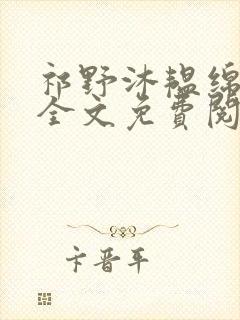 祁野沐韫绵
全文免费阅
卞晋平